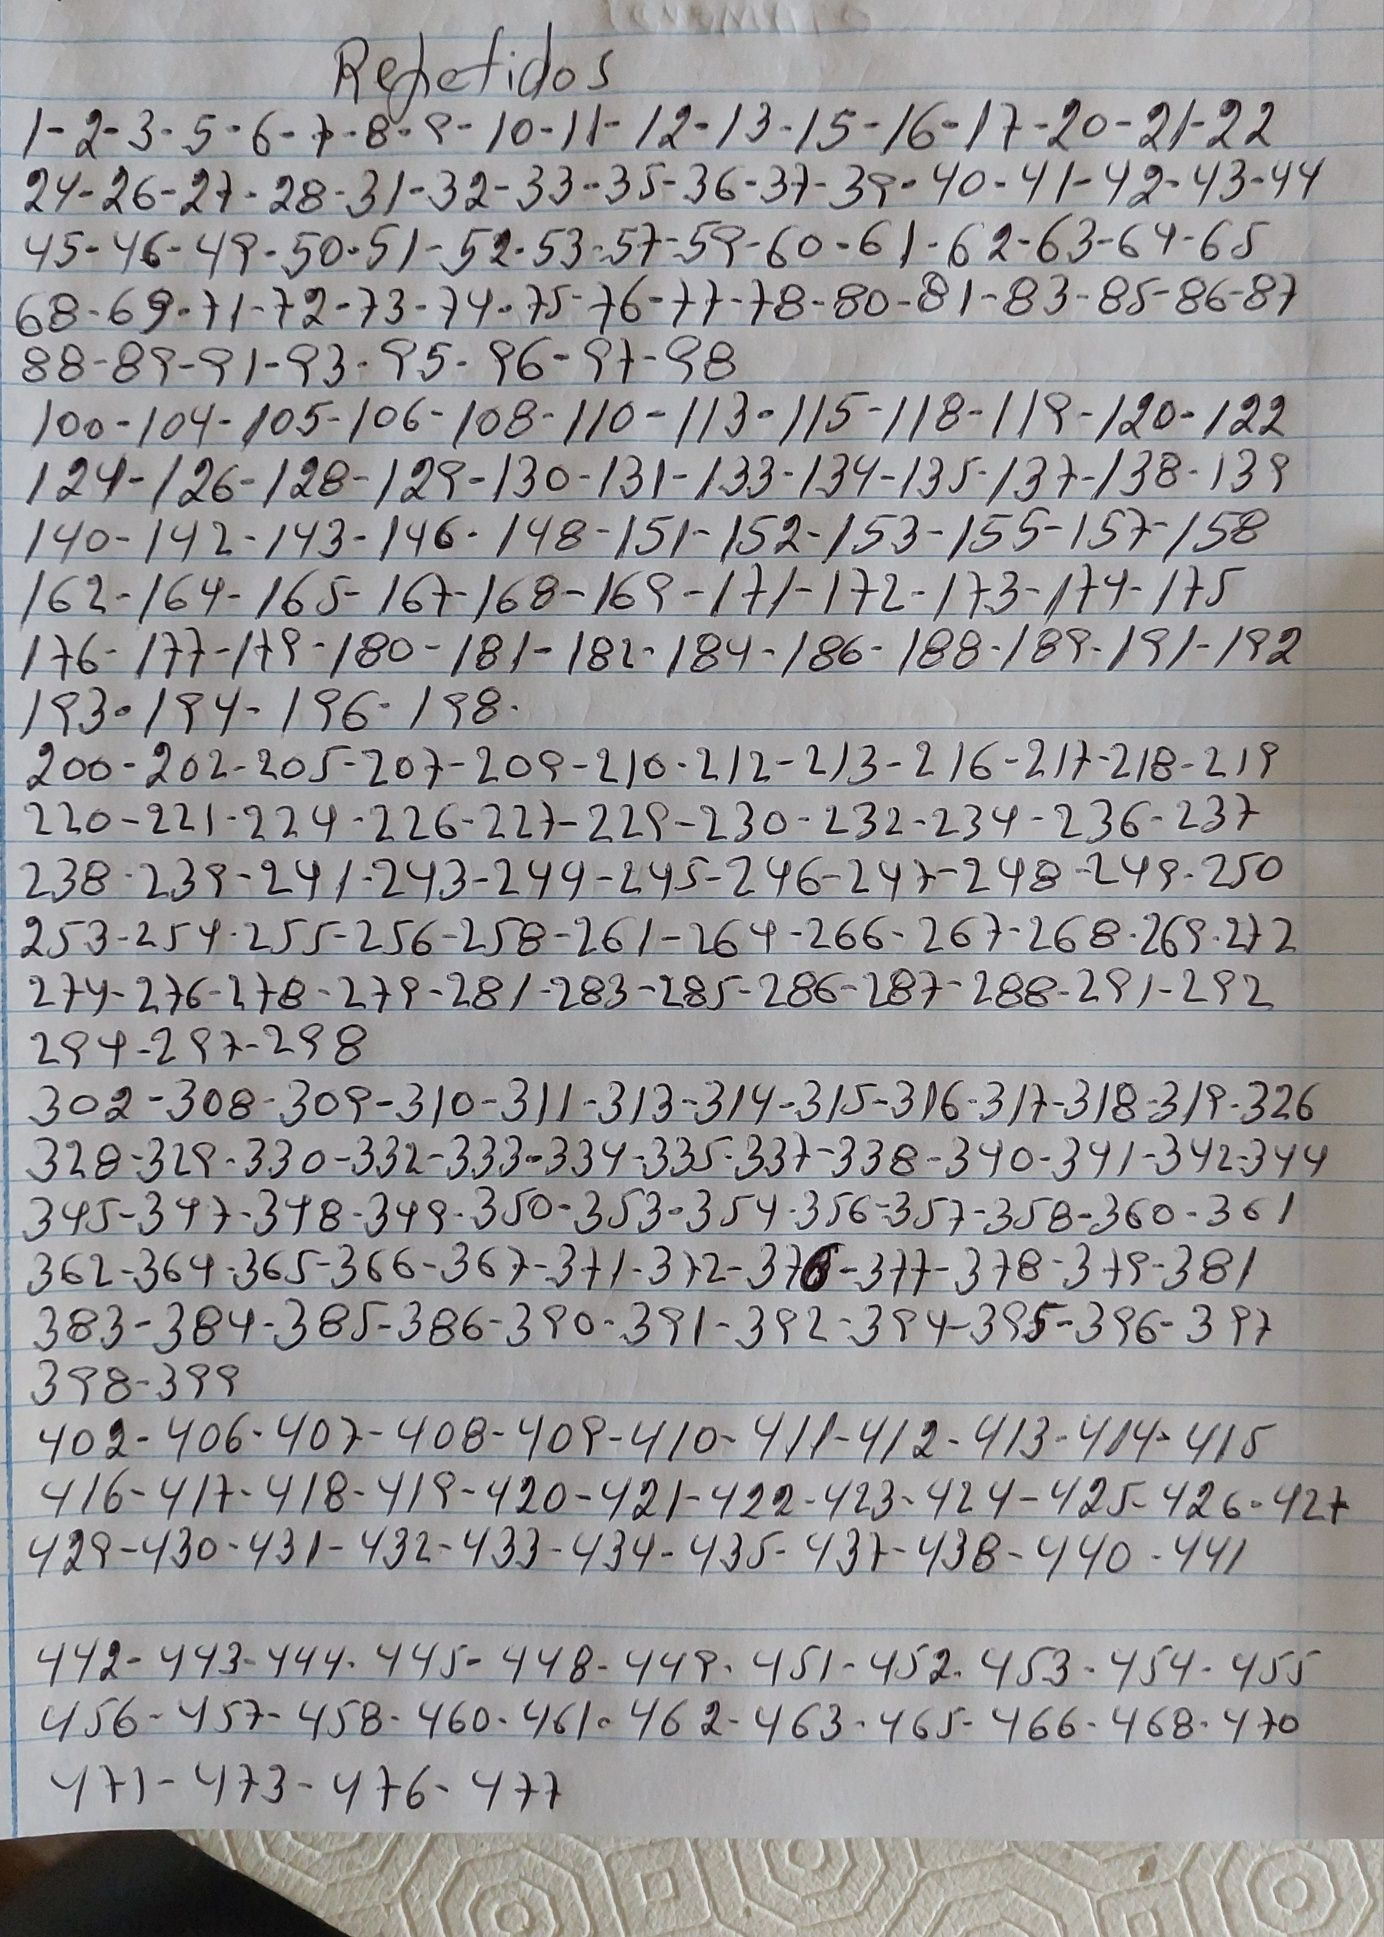 Repetidos
1-2-3-5-6-7-8-9-10-11-12-13-15-16-17-20-21-22
24-26-27-28-31-32-33-35-36-37-39-40-41-42-43-44
45-46-49-50-51-52-53-57-59-60-61-62-63-64-65
68-69-71-72-73-74-75-76-77-78-80-81-83-85-86-87
88-89-91-93-95-96-97-98
100-104-105-106-108-110-113-115-118-119-120-122
124-126-128-129-130-131-133-134-135-137-138-139
140-142-143-146-148-151-152-153-155-157-158
162-164-165-167-168-169-171-172-173-174-175
176-177-179-180-181-182-184-186-188-189-191-192
193-194-196-198-
200-202-205-207-209-210-212-213-216-217-218-219
220-221-224-226-227-229-230-232-234-236-237
238-239-241-243-244-245-246-247-248-249-250
253-254-255-256-258-261-264-266-267-268-269-272
274-276-278-279-281-283-285-286-287-288-291-292
294-297-298
302-308-309-310-311-313-314-315-316-317-318-319-326
328-329-330-332-333-334-335-337-338-340-341-342-344
345-347-348-349-350-353-354-356-357-358-360-361
362-364-365-366-367-371-372-376-377-378-379-381
383-384-385-386-390-391-392-394-395-396-397
398-399
402-406-407-408-409-410-411-412-413-414-415
416-417-418-419-420-421-422-423-424-425-426-427
429-430-431-432-433-434-435-437-438-440-441
442-443-444-445-448-449-451-452-453-454-455
456-457-458-460-461-462-463-465-466-468-470
471-473-476-477